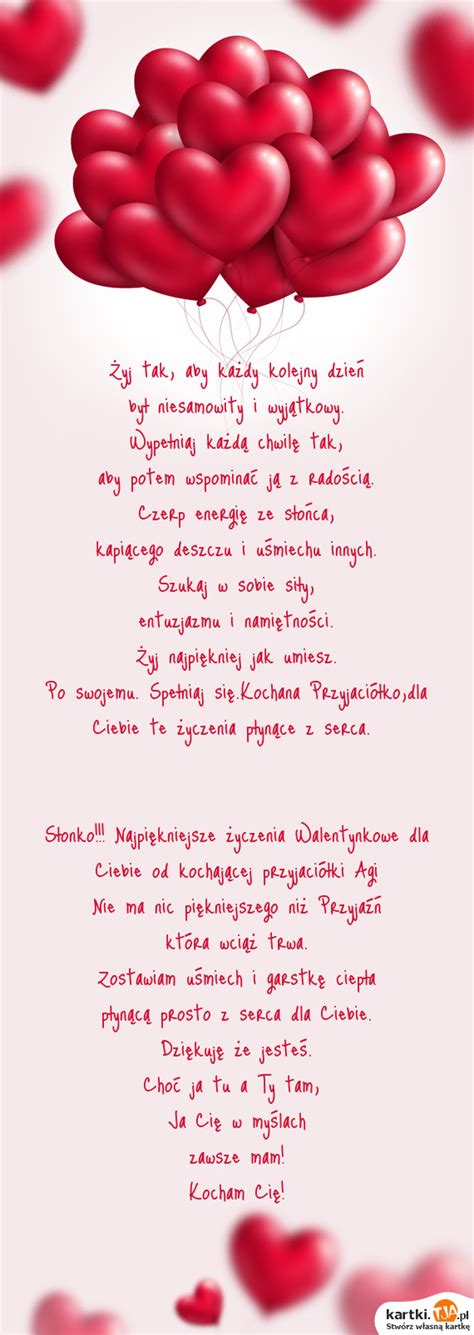 Żyj tak, aby każdy kolejny dzień
był niesamowity i wyjątkowy.
Wypełniaj każdą chwilę tak,
aby potem wspominać ją z radością.
Czerp energię ze słońca,
kapiącego deszczu i uśmiechu innych.
Szukaj w sobie siły,
entuzjazmu i namiętności.
Żyj najpiękniej jak umiesz.
Po swojemu. Spełniaj się.Kochana Przyjaciółko,dla
Ciebie te życzenia płynące z serca.
Słonko!!! Najpiękniejsze życzenia Walentynkowe dla
Ciebie od kochającej przyjaciółki Agi
Nie ma nic piękniejszego niż Przyjaźń
która wciąż trwa.
Zostawiam uśmiech i garstkę ciepła
płynącą prosto z serca dla Ciebie.
Dziękuję że jesteś.
Choć ja tu a Ty tam,
Ja Cię w myślach
zawsze mam!
Kocham Cię!
kartki.TJA.pl
Stwórz własną kartkę